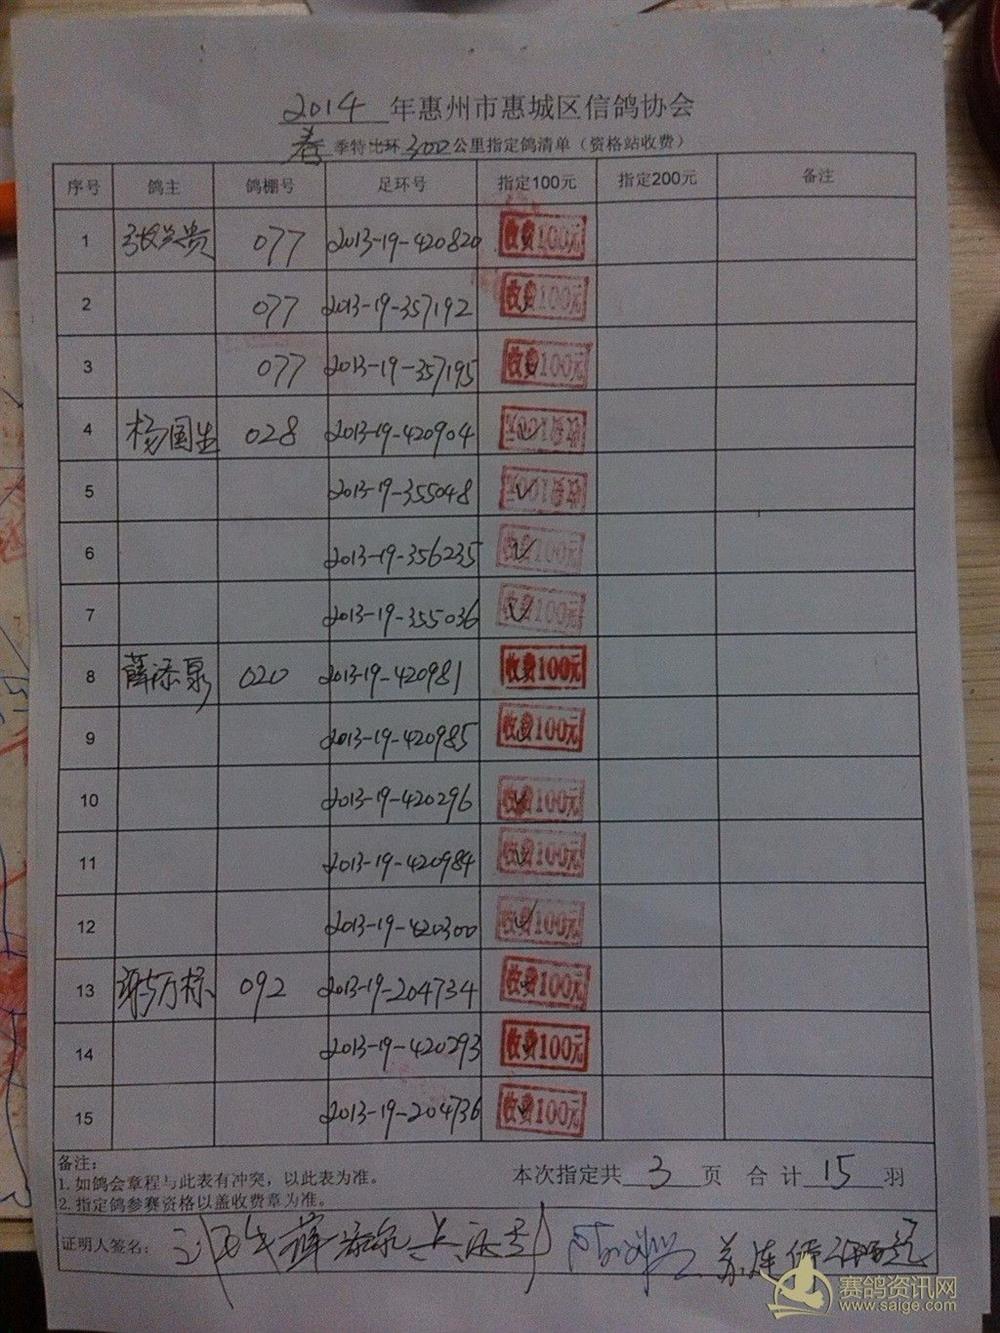 2014 年惠州市惠城区信鸽协会
春 季特比环 300 公里指定鸽清单（资格站收费）
序号 鸽主 鸽棚号 足环号 指定100元 指定200元 备注
1 张兴贵 077 2013-19-420820 收费100元
2 077 2013-19-357192 收费100元
3 077 2013-19-357195 收费100元
4 杨国生 028 2013-19-420904 收费100元
5 2013-19-355048 收费100元
6 2013-19-356235 收费100元
7 2013-19-355036 收费100元
8 薛添泉 020 2013-19-420981 收费100元
9 2013-19-420985 收费100元
10 2013-19-420296 收费100元
11 2013-19-420984 收费100元
12 2013-19-420300 收费100元
13 谢万标 092 2013-19-204734 收费100元
14 2013-19-420293 收费100元
15 2013-19-204736 收费100元
备注：
1. 如鸽会章程与此表有冲突，以此表为准。
2. 指定鸽参赛资格以盖收费章为准。
本次指定共 3 页 合计 15 羽
证明人签名： 薛添泉
赛鸽资讯网
www.saige.com